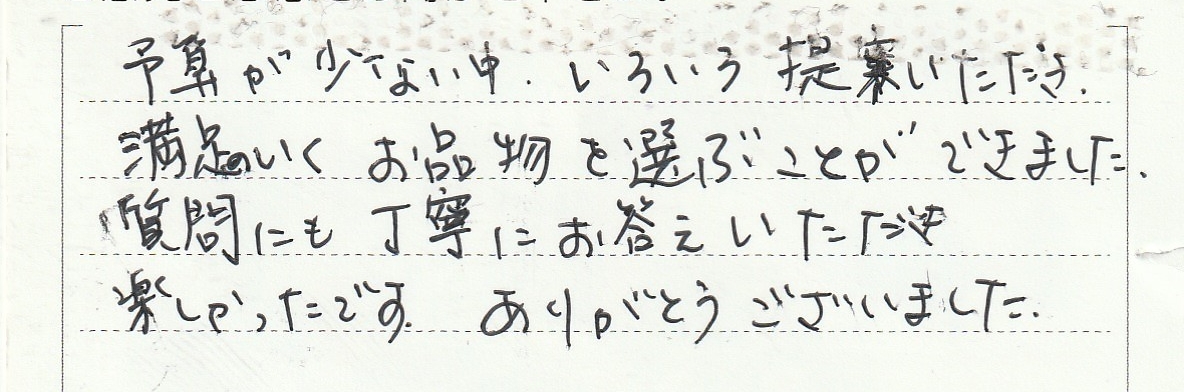 予算が少ない中、いろいろ提案いただき、
満足のいくお品物を選ぶことができました。
質問にも丁寧にお答えいただき
楽しかったです。ありがとうございました。